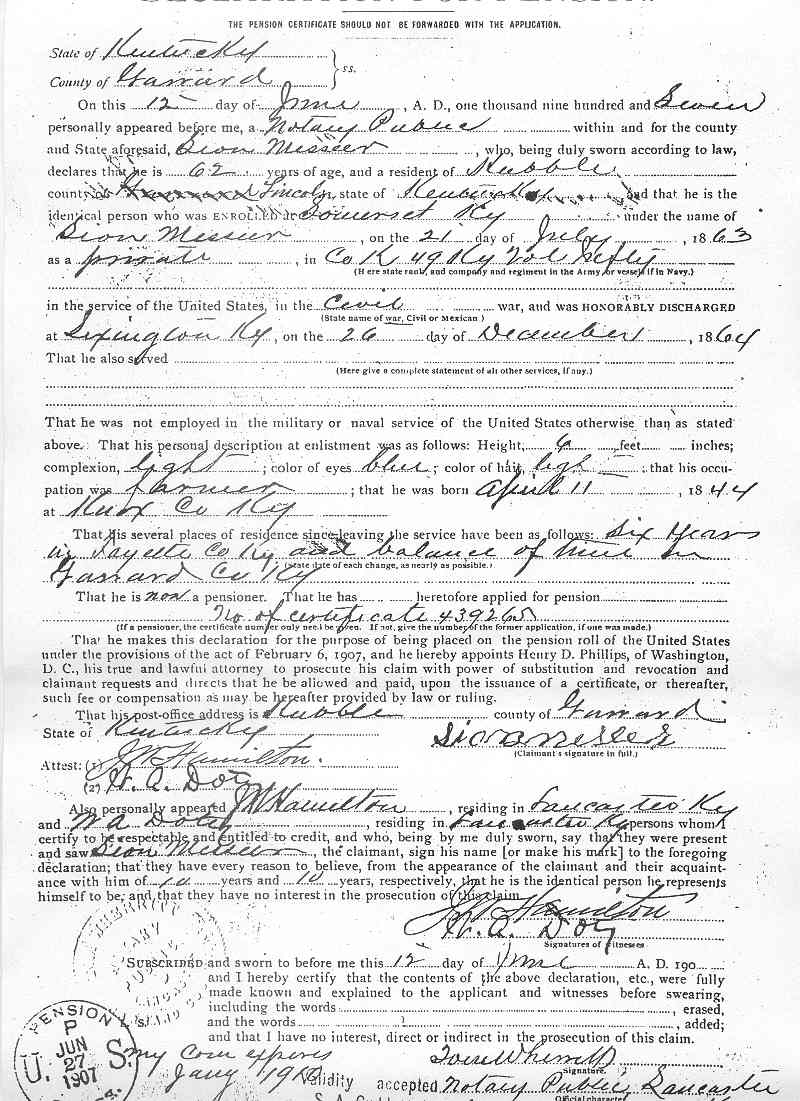 THE PENSION CERTIFICATE SHOULD NOT BE FORWARDED WITH THE APPLICATION.
State of Kentucky
County of Garrard } ss.
On this 12 day of June, A. D., one thousand nine hundred and Seven
personally appeared before me, a Notary Public within and for the county
and State aforesaid, Sion Messer, who, being duly sworn according to law,
declares that he is 62 years of age, and a resident of Hubble
county of Lincoln, state of Kentucky and that he is the
identical person who was ENROLLED at Somerset Ky under the name of
Sion Messer, on the 21 day of July, 1863
as a private, in Co K 49 Ky Vol
(Here state rank, and company and regiment in the Army, or vessel if in Navy.)
in the service of the United States, in the Civil war, and was HONORABLY DISCHARGED
(State name of war, Civil or Mexican)
at Lexington Ky, on the 26 day of December, 1864
That he also served
(Here give a complete statement of all other services, if any.)
That he was not employed in the military or naval service of the United States otherwise than as stated
above. That his personal description at enlistment was as follows: Height, 6 feet inches;
complexion, light; color of eyes blue; color of hair, light; that his occu-
pation was farmer; that he was born April 11, 1844
at Knox Co Ky
That his several places of residence since leaving the service have been as follows: Six Years
in Fayette Co Ky and balance of time in
(State date of each change, as nearly as possible.)
Garrard Co Ky
That he is now a pensioner. That he has heretofore applied for pension
No. of certificate 439265
(If a pensioner, the certificate number only need be given. If not, give the number of the former application, if one was made.)
That he makes this declaration for the purpose of being placed on the pension roll of the United States
under the provisions of the act of February 6, 1907, and he hereby appoints Henry D. Phillips, of Washington,
D. C., his true and lawful attorney to prosecute his claim with power of substitution and revocation and
claimant requests and directs that he be allowed and paid, upon the issuance of a certificate, or thereafter,
such fee or compensation as may be hereafter provided by law or ruling.
That his post-office address is Hubble county of Garrard
State of Kentucky
(Claimant's signature in full.)
Attest: (1) J W Hamilton.
(2) W. A. Doty
Also personally appeared J W Hamilton, residing in Lancaster Ky
and W A Doty, residing in Lancaster Ky persons whom I
certify to be respectable and entitled to credit, and who, being by me duly sworn, say that they were present
and saw Sion Messer, the claimant, sign his name [or make his mark] to the foregoing
declaration; that they have every reason to believe, from the appearance of the claimant and their acquaint-
ance with him of 10 years and 10 years, respectively, that he is the identical person he represents
himself to be, and that they have no interest in the prosecution of this claim.
J W Hamilton
W. A. Doty
Signatures of witnesses
SUBSCRIBED and sworn to before me this 12 day of June A. D. 190
and I hereby certify that the contents of the above declaration, etc., were fully
made known and explained to the applicant and witnesses before swearing,
including the words, erased,
L. S. and the words, added;
and that I have no interest, direct or indirect in the prosecution of this claim.
PENSION
P
JUN
27
1907
U. S.
my Com expires
Jany 1910
Signature.
Validity accepted Notary Public, Lancaster
Official character